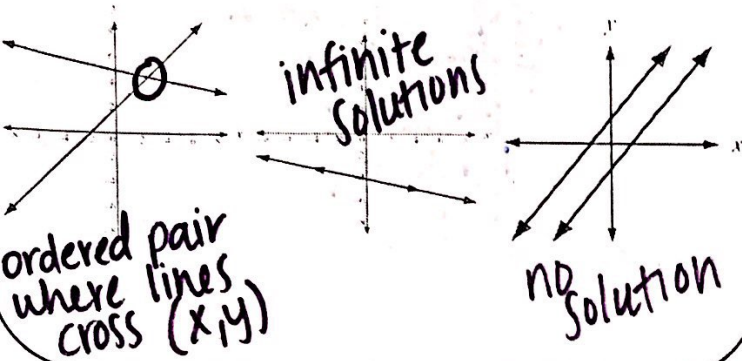 ordered pair
where lines
cross (x,y)
infinite
solutions
no
solution
y
x